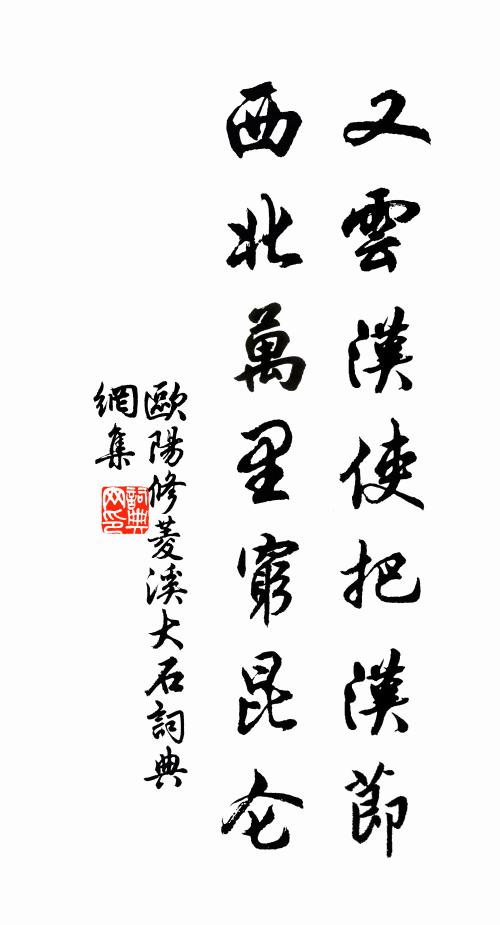 又雲漢使把漢節
西北萬里窮昆仑
歐陽修菱溪大石詞典
網集
詞典
网印